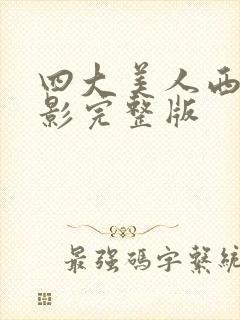 四大美人西
影完整版
最强碼字繫統